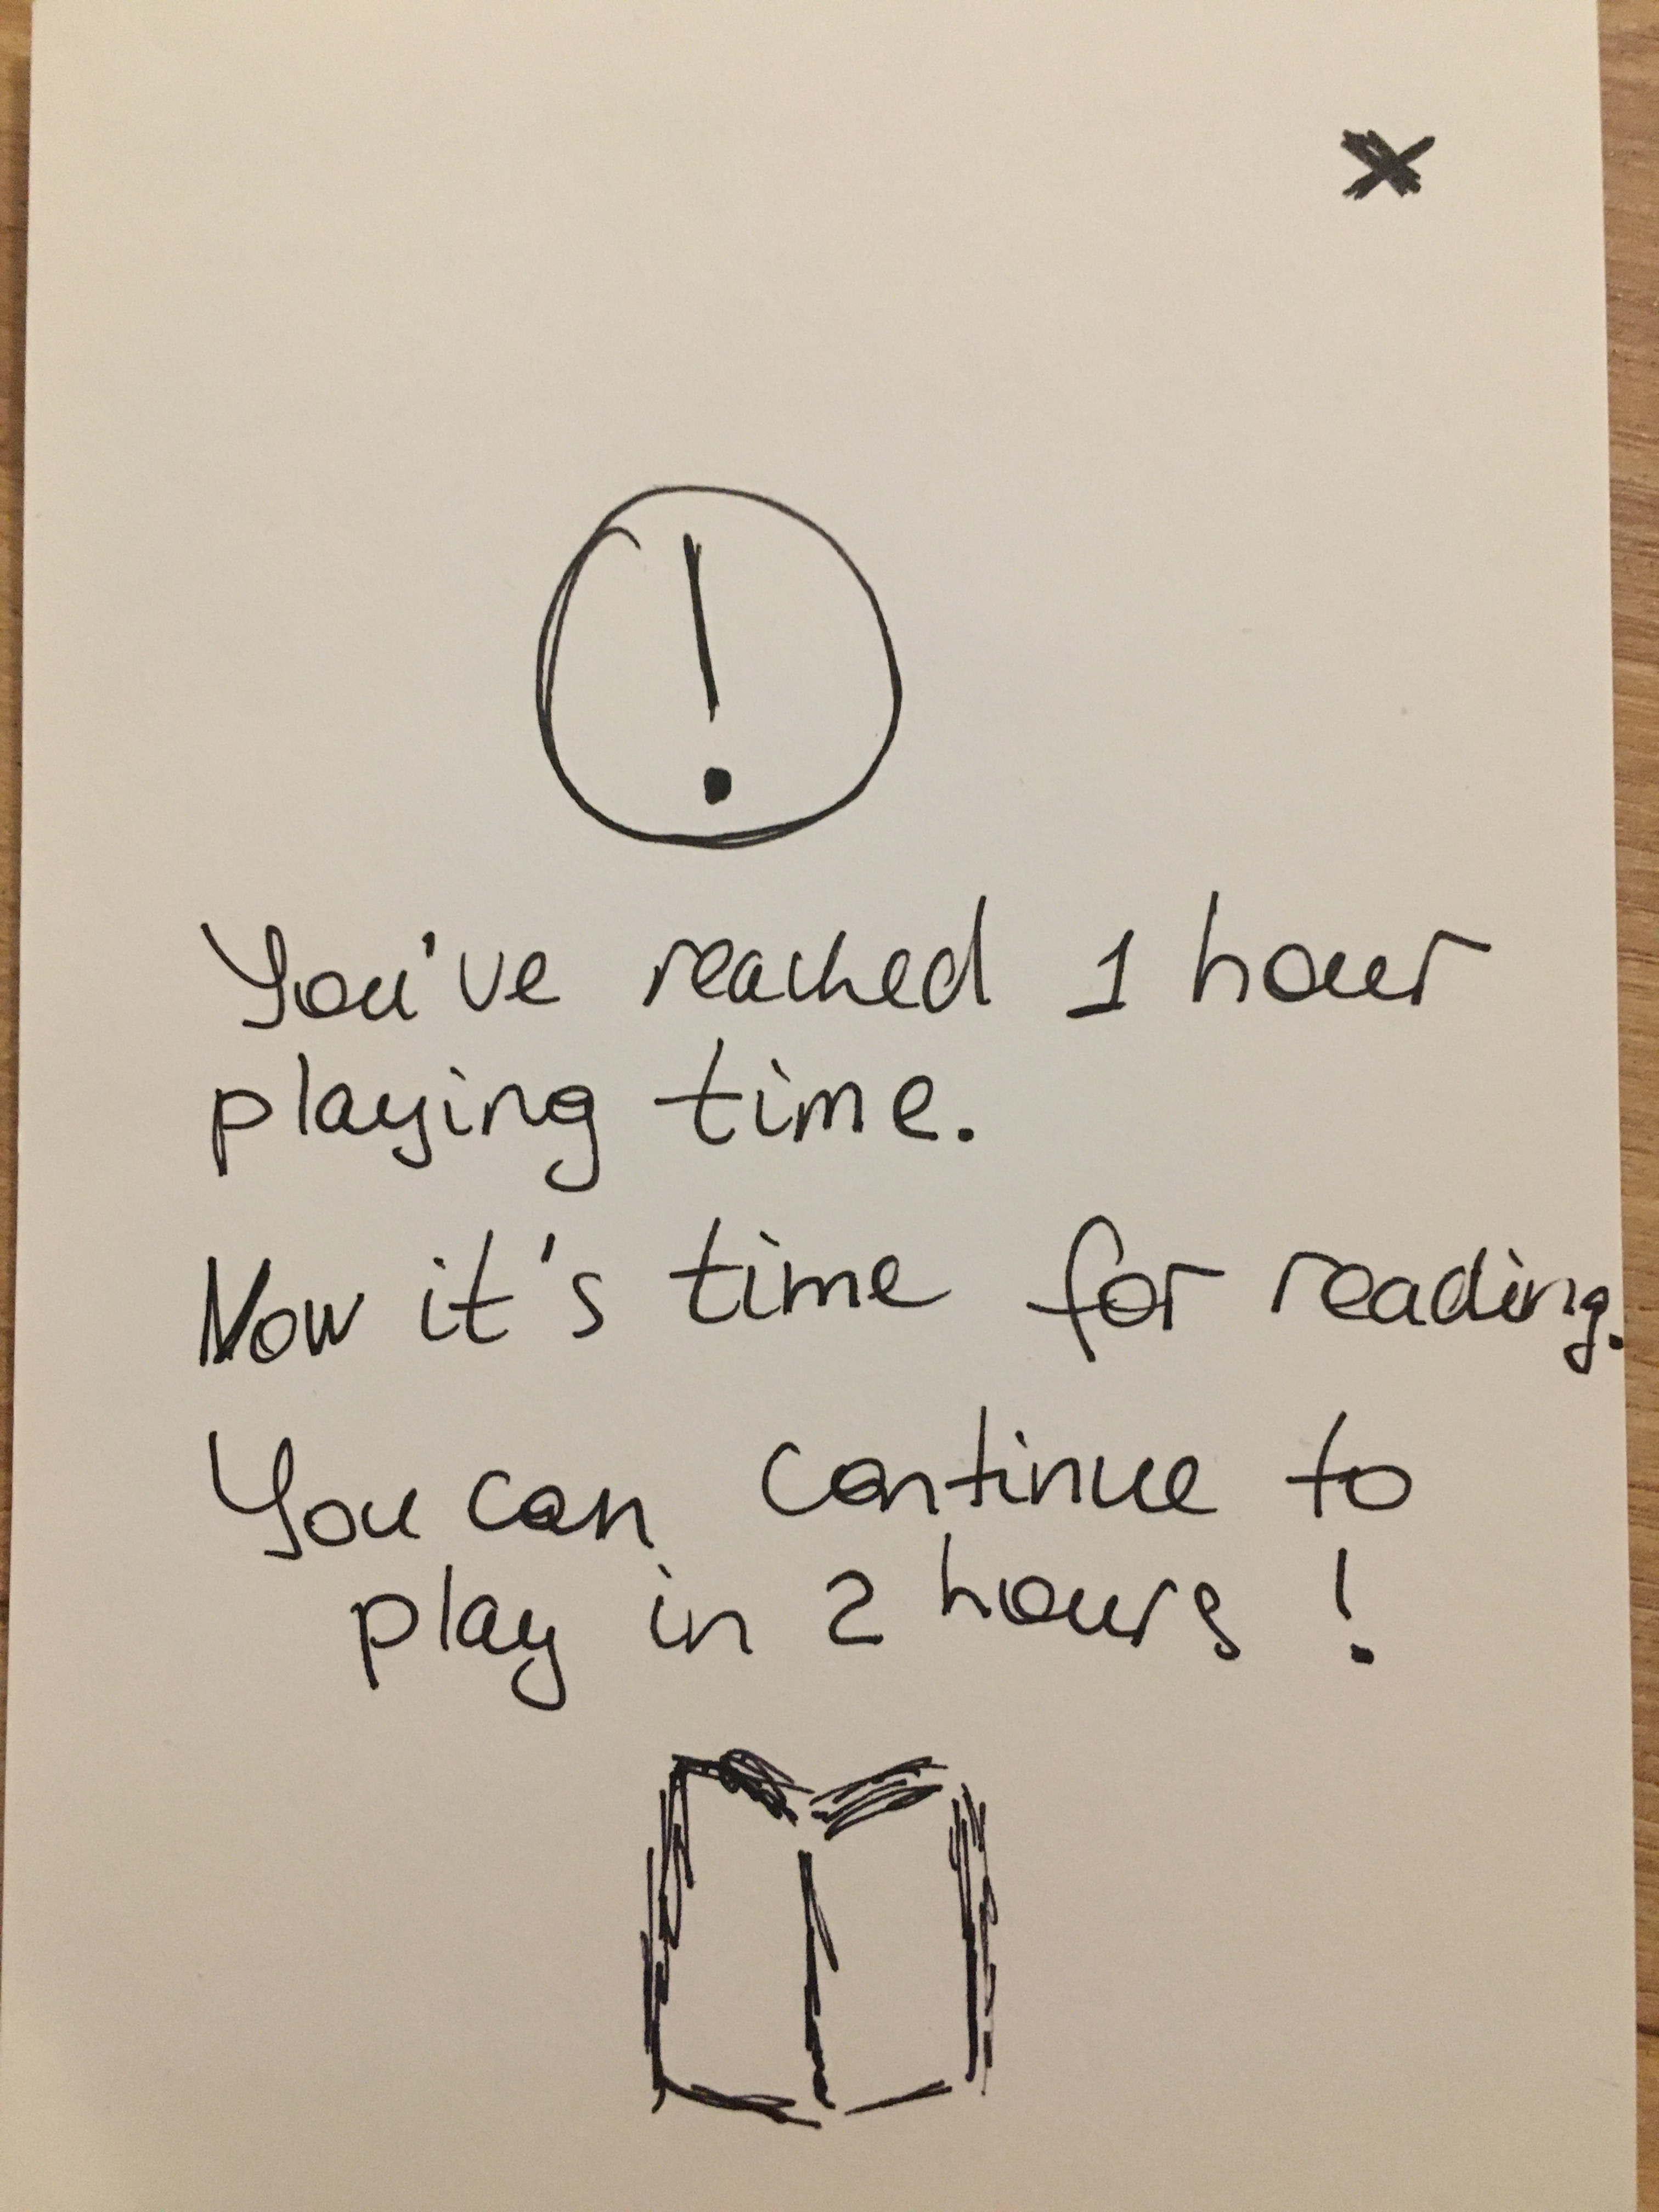 You've reached 1 hour
playing time.
Now it's time for reading.
You can continue to
play in 2 hours!